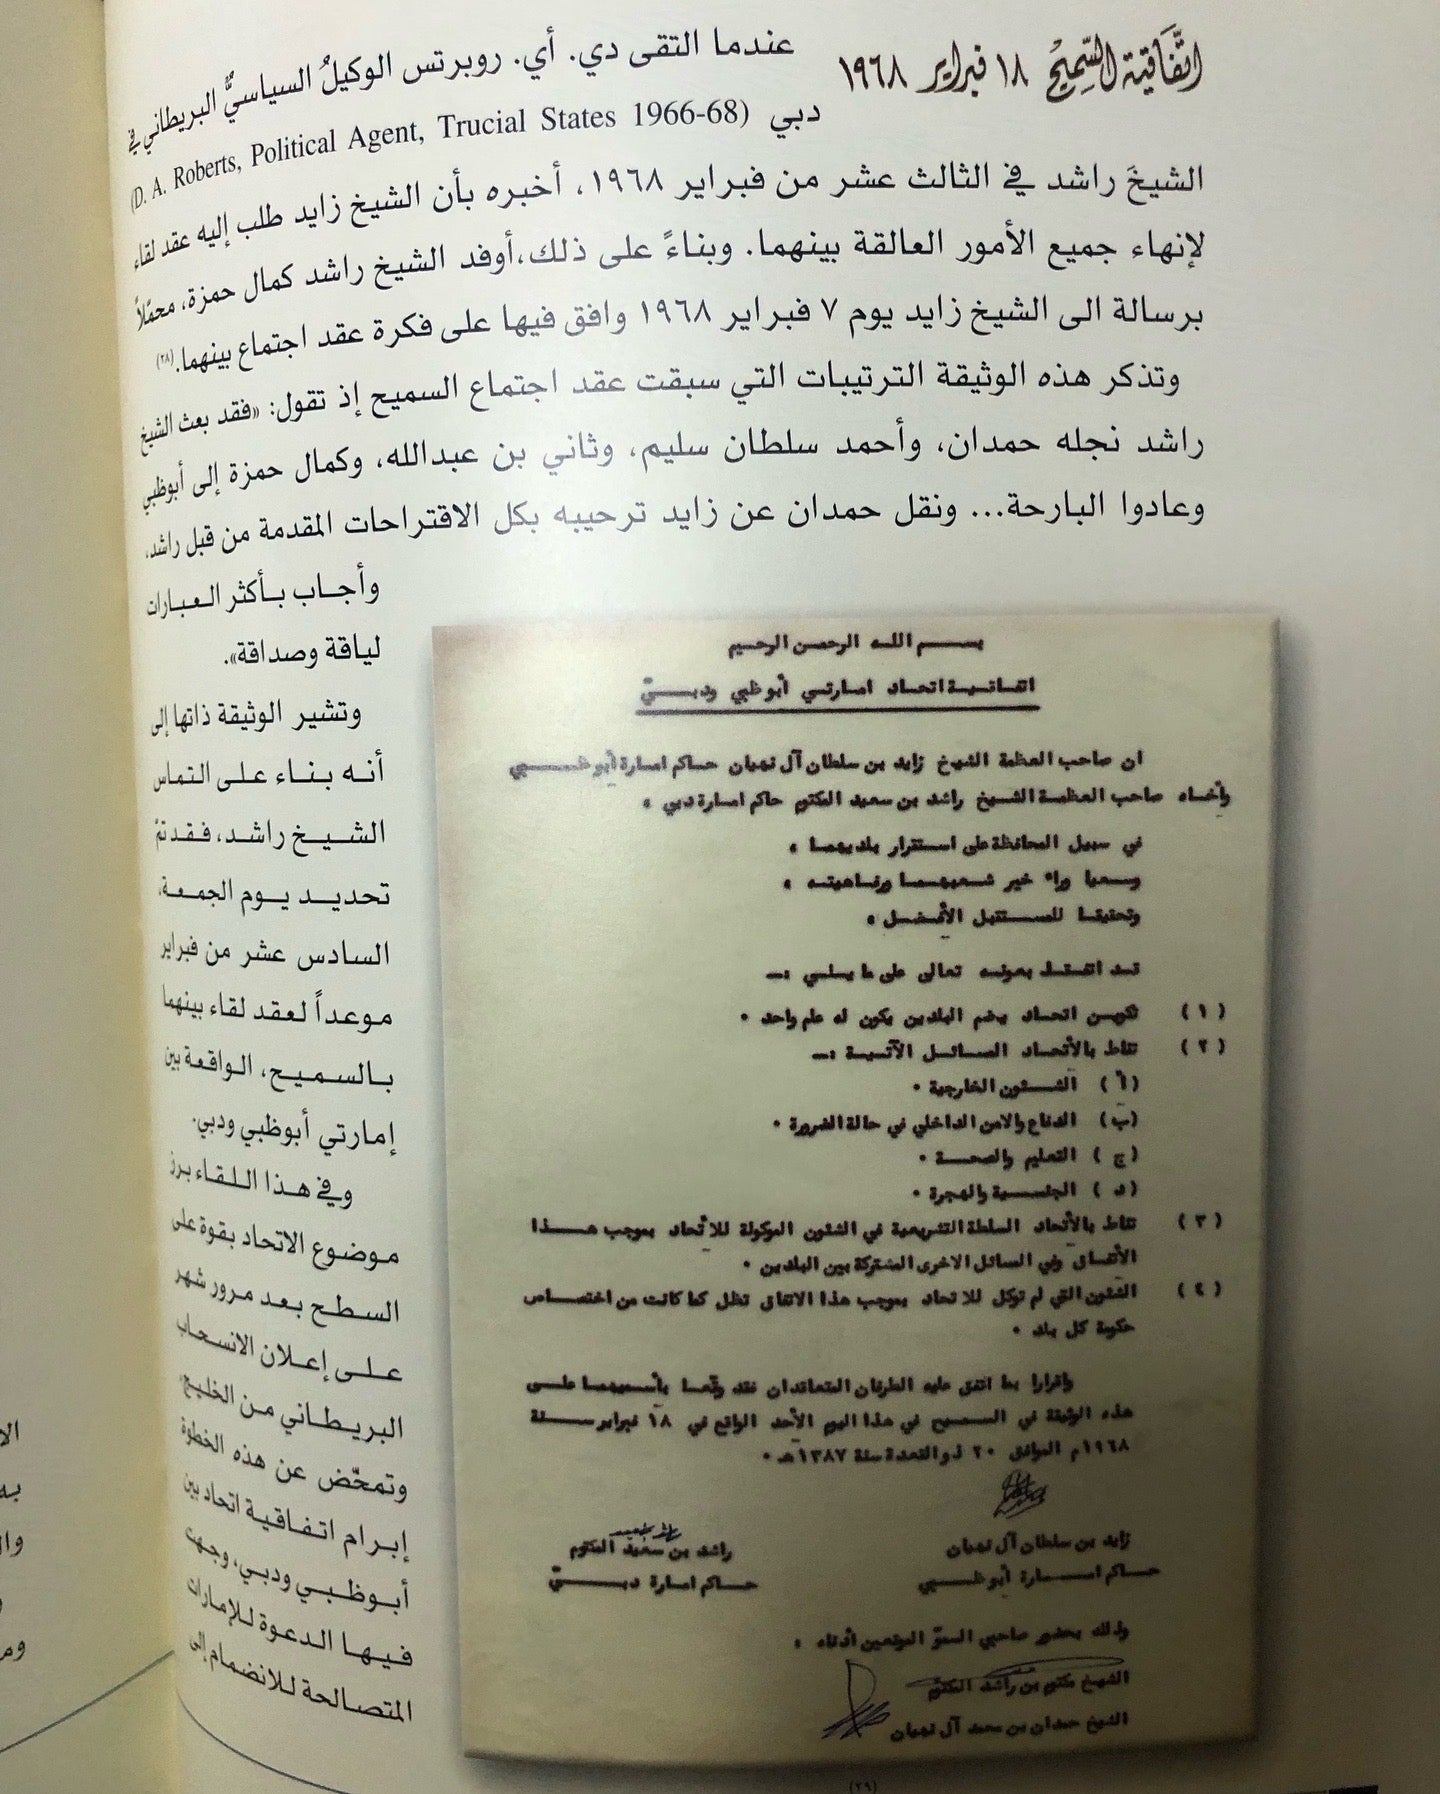 اتّفاقية السّميح ١٨ فبراير ١٩٦٨
عندما التقى دي. أي. روبرتس الوكيلُ السياسيُّ البريطاني في
دبي (D. A. Roberts, Political Agent, Trucial States 1966-68)
الشيخَ راشد في الثالث عشر من فبراير ١٩٦٨، أخبره بأن الشيخ زايد طلب إليه عقد لقاء
لإنهاء جميع الأمور العالقة بينهما. وبناءً على ذلك،أوفد الشيخ راشد كمال حمزة، محمّلاً
برسالة الى الشيخ زايد يوم ٧ فبراير ١٩٦٨ وافق فيها على فكرة عقد اجتماع بينهما.(٢٨)
وتذكر هذه الوثيقة الترتيبات التي سبقت عقد اجتماع السميح إذ تقول: «فقد بعث الشيخ
راشد نجله حمدان، وأحمد سلطان سليم، وثاني بن عبدالله، وكمال حمزة إلى أبوظبي
وعادوا البارحة... ونقل حمدان عن زايد ترحيبه بكل الاقتراحات المقدمة من قبل راشد،
وأجاب بأكثر العبارات
لياقة وصداقة».
وتشير الوثيقة ذاتها إلى
أنه بناء على التماس
الشيخ راشد، فقد تمّ
تحديد يوم الجمعة،
السادس عشر من فبراير
موعداً لعقد لقاء بينهما
بالسميح، الواقعة بين
إمارتي أبوظبي ودبي.
وفي هذا اللقاء برز
موضوع الاتحاد بقوة على
السطح بعد مرور شهر
على إعلان الانسحاب
البريطاني من الخليج
وتمخّض عن هذه الخطوة
إبرام اتفاقية اتحاد بين
أبوظبي ودبي، وجهت
فيها الدعوة للإمارات
المتصالحة للانضمام إلى
بسم الله الرحمن الرحيم
اتفاقية اتحاد امارتي أبوظبي ودبيّ
ان صاحب العظمة الشيخ زايد بن سلطان آل نهيان حاكم امارة أبوظبي
وأخاه صاحب العظمة الشيخ راشد بن سعيد المكتوم حاكم امارة دبي ،
في سبيل المحافظة على استقرار بلديهما ،
وسعيا وراء خير شعبيهما ورفاهيته ،
وتحقيقا للمستقبل الأفضل ،
قد اتفقا بعونه تعالى على ما يلي :ـ
(١) تكوين اتحاد يضم البلدين يكون له علم واحد .
(٢) تناط بالأتحاد المسائل الآتية :ـ
(أ) الشئون الخارجية .
(ب) الدفاع والامن الداخلي في حالة الضرورة .
(ج) التعليم والصحة .
(د) الجنسية والهجرة .
(٣) تناط بالأتحاد السلطة التشريعية في الشئون الموكولة للأتحاد بموجب هذا
الأتفاق وفي المسائل الاخرى المشتركة بين البلدين .
(٤) الشئون التي لم توكل للاتحاد بموجب هذا الاتفاق تظل كما كانت من اختصاص
حكومة كل بلد .
واقرارا بما اتفق عليه الطرفان المتعاقدان فقد وقّعا بأسميهما على
هذه الوثيقة في السميح في هذا اليوم الأحد الواقع في ١٨ فبراير سنة
١٩٦٨م الموافق ٢٠ ذو القعدة سنة ١٣٨٧هـ .
زايد بن سلطان آل نهيان
حاكم امارة أبوظبي
راشد بن سعيد المكتوم
حاكم امارة دبيّ
وذلك بحضور صاحبي السموّ الموقعين أدناه ،
الشيخ مكتوم بن راشد المكتوم
الشيخ حمدان بن محمد آل نهيان
(٢٩)